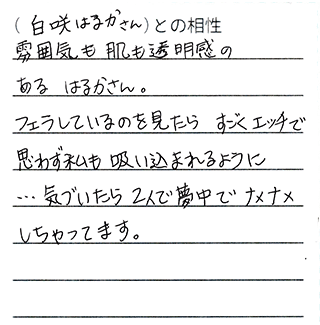 (白咲はるかさん)との相性
雰囲気も肌も透明感の
ある はるかさん。
フェラしているのを見たら すごくエッチで
思わず私も 吸い込まれるように
…気づいたら 2人で夢中で ナメナメ
しちゃってます。